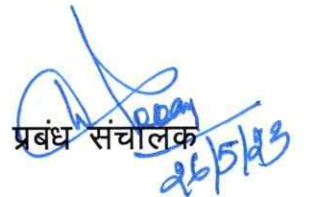 प्रबंध संचालक
26/5/23